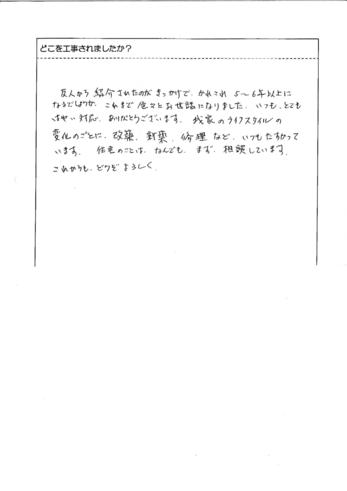 どこを工事されましたか？
友人から紹介されたのがきっかけで、かれこれ5～6年以上に
なるでしょうか、これまで色々とお世話になりました。いつも、とても
はやい対応、ありがとうございます。我家のライフスタイルの
変化のごとに、改築、新築、修理など、いつもたすかって
います。住宅のことは、なんでも、まず、相談しています。
これからも、どうぞよろしく。